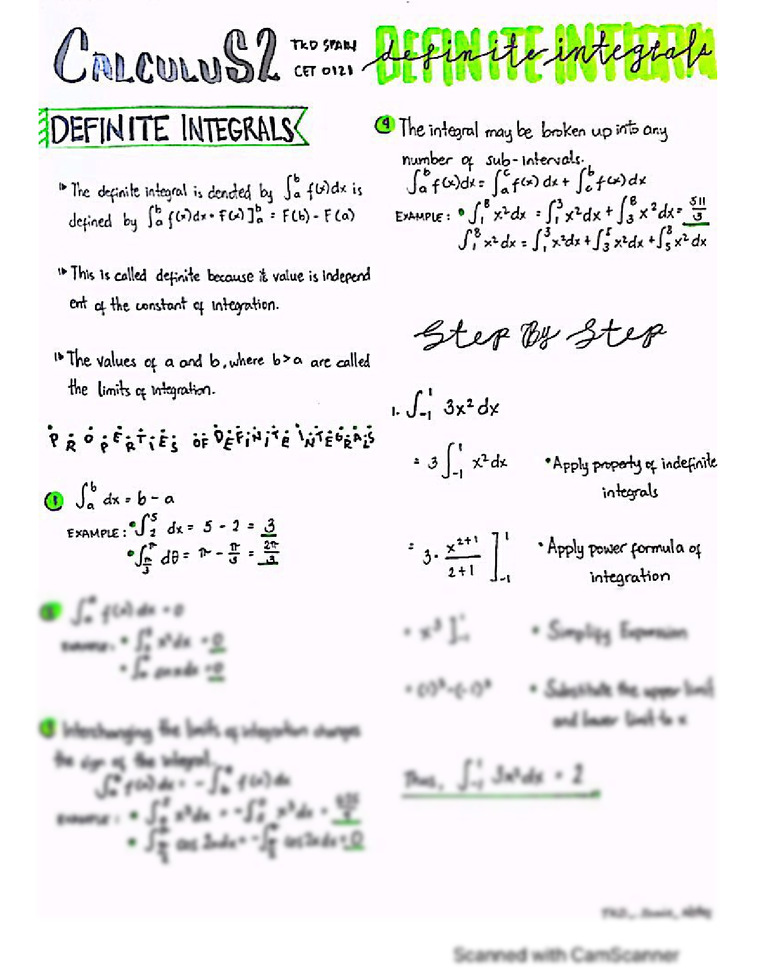 CALCULUS2
TKD SPAIN
CET 0121
DEFINITE INTEGRALS
definite integrals
DEFINITE INTEGRALS
The definite integral is denoted by ∫ₐᵇ f(x)dx is
defined by ∫ₐᵇ f(x)dx = F(x)]ₐᵇ = F(b) - F(a)
This is called definite because it value is independ
ent of the constant of integration.
The values of a and b, where b>a are called
the limits of integration.
PROPERTIES OF DEFINITE INTEGRALS
1 ∫ₐᵇ dx = b - a
EXAMPLE: • ∫₂⁵ dx = 5 - 2 = 3
• ∫_{π/3}^{π} dθ = π - π/3 = 2π/3
∫ f(x) dx = 0
Interchanging the limits of integration changes
the sign of the integral.
4 The integral may be broken up into any
number of sub-intervals.
∫ₐᵇ f(x)dx = ∫ₐᶜ f(x)dx + ∫꜀ᵇ f(x)dx
EXAMPLE: • ∫₁⁸ x²dx = ∫₁³ x²dx + ∫₃⁸ x²dx = 511/3
∫₁⁸ x²dx = ∫₁³ x²dx + ∫₃⁵ x²dx + ∫₅⁸ x²dx
Step By Step
1. ∫₋₁¹ 3x²dx
= 3∫₋₁¹ x²dx • Apply property of indefinite
integrals
= 3 · x²⁺¹/2+1 ]₋₁¹ • Apply power formula of
integration
= x³]₋₁¹ • Simplify Expression
• Substitute the upper limit
and lower limit to x
Thus, ∫₋₁¹ 3x²dx = 2
Scanned with CamScanner